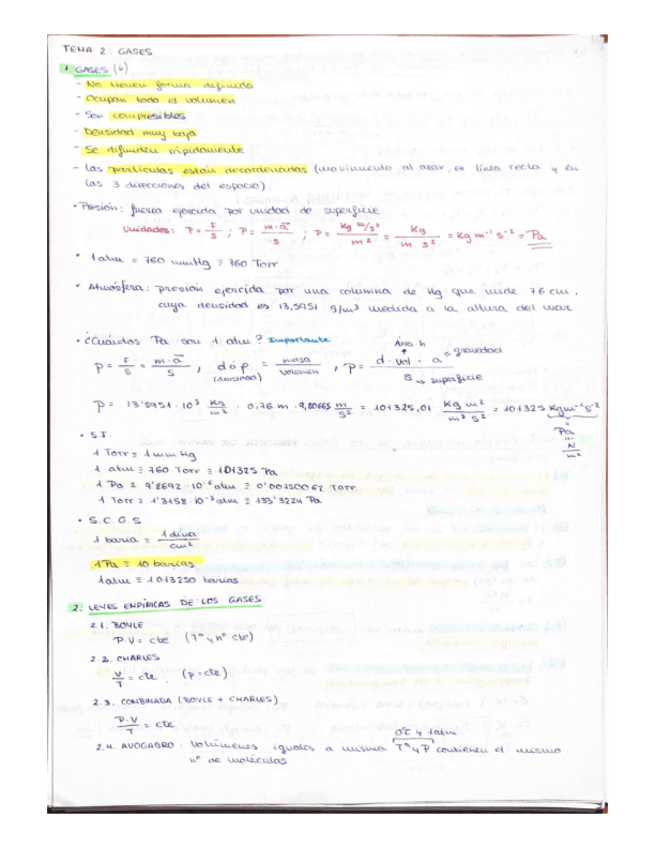 TEMA 2: GASES
1. GASES (6)
- No tienen forma definida
- Ocupan todo el volumen
- Son compresibles
- Densidad muy baja
- Se difunden rápidamente
- Las partículas están desordenadas (movimiento al azar, en línea recta y en
las 3 direcciones del espacio).
• Presión: fuerza ejercida por unidad de superficie
Unidades: P = F/S ; P = m·a/s ; P = Kg m/s² / m² = Kg / m s² = Kg m⁻¹ s⁻² = Pa
• 1 atm = 760 mmHg ≡ 760 Torr
• Atmósfera: presión ejercida por una columna de Hg que mide 76 cm,
cuya densidad es 13,5951 g/m³ medida a la altura del mar
• ¿Cuántos Pa son 1 atm? Importante
Área · h
P = F/S = m·a/S , d ó ρ (densidad) = masa/volumen , P = d · Vol · a / S = gravedad
→ superficie
P = 13'5951·10³ Kg/m³ · 0,76 m · 9,80665 m/s² = 101325,01 Kg m²/m³ s² = 101325 Kg m⁻¹ s⁻²
Pa
N/m²
• S.I.
1 Torr ≡ 1 mm Hg
1 atm ≡ 760 Torr ≡ 101325 Pa
1 Pa ≡ 9'8692·10⁻⁶ atm ≡ 0'00750062 Torr
1 Torr ≡ 1'3158·10⁻³ atm ≡ 133'3224 Pa
• S.C.G.S
1 baria ≡ 1 dina/cm²
1 Pa ≡ 10 barias
1 atm ≡ 1013250 barias
2. LEYES EMPÍRICAS DE LOS GASES
2.1. BOYLE
P·V = cte (Tª y nº cte)
2.2. CHARLES
V/T = cte. (p = cte)
2.3. COMBINADA (BOYLE + CHARLES)
P·V/T = cte
0ºC y 1 atm
2.4. AVOGADRO: Volúmenes iguales a misma Tª y P contienen el mismo
nº de moléculas